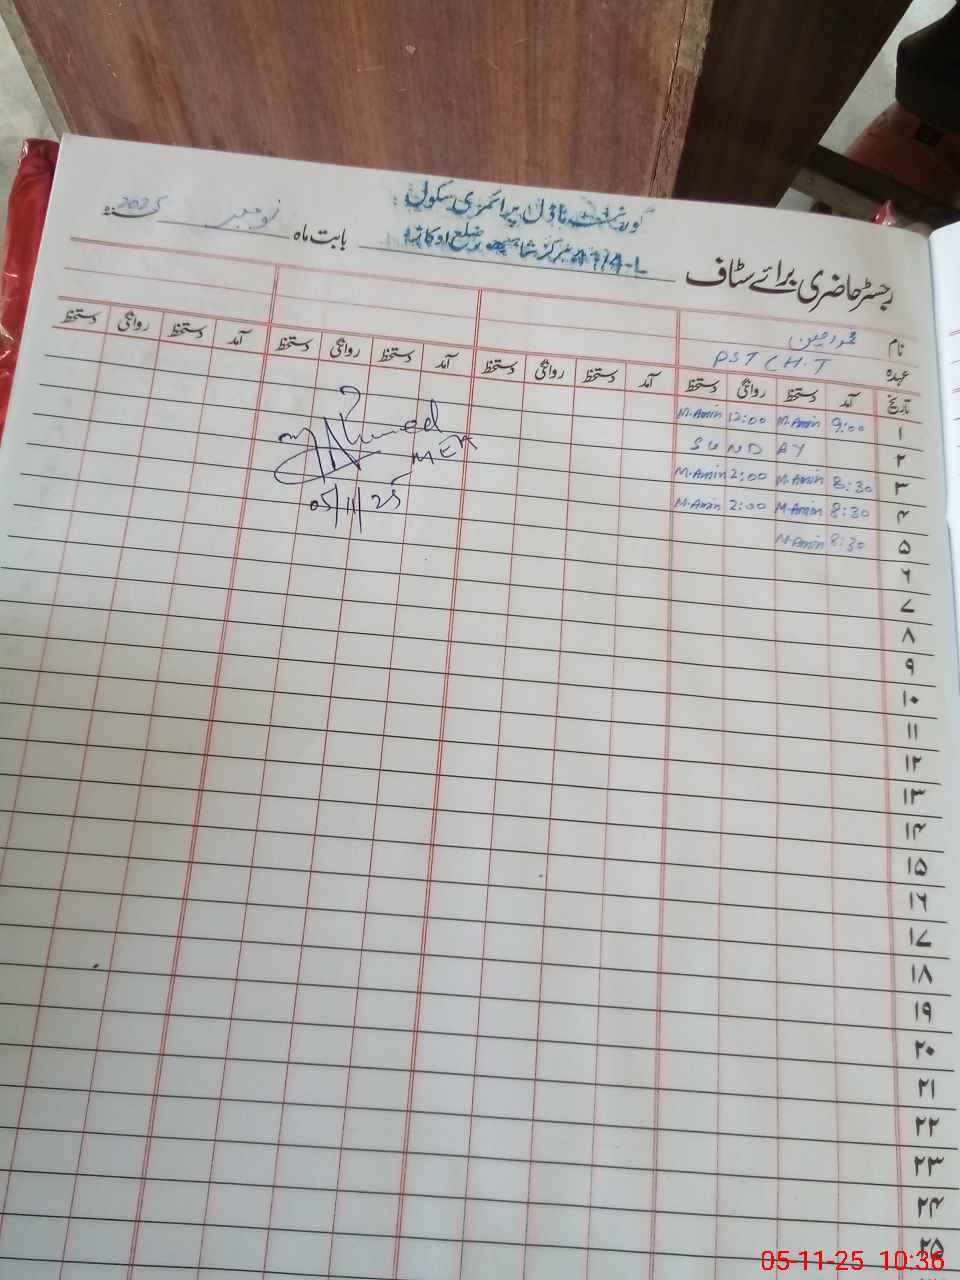 گورنمنٹ ماڈل پرائمری سکول
41/4-L مرکز شاہبھور ضلع اوکاڑہ
رجسٹر حاضری برائے سٹاف بابت ماہ نومبر سنہ 2025
نام محمد امین
عہدہ PST / H.T
تاریخ آمد دستخط روانگی دستخط آمد دستخط روانگی دستخط آمد دستخط روانگی دستخط آمد دستخط روانگی دستخط
۱ 9:00 M.Amin 12:00 M.Amin
۲ SUNDAY
۳ 8:30 M.Amin 2:00 M.Amin
۴ 8:30 M.Amin 2:00 M.Amin
۵ 8:30 M.Amin
Ahmed
MEA
05/11/25
۶
۷
۸
۹
۱۰
۱۱
۱۲
۱۳
۱۴
۱۵
۱۶
۱۷
۱۸
۱۹
۲۰
۲۱
۲۲
۲۳
۲۴
۲۵
05-11-25 10:36